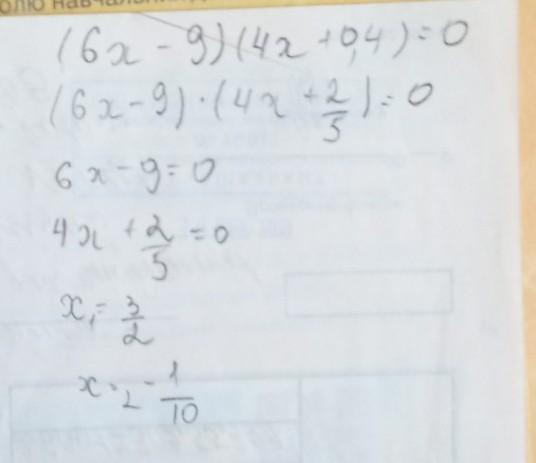 олю навчальни
(6x - 9)(4x + 0,4) = 0
(6x - 9) · (4x + 2/5) = 0
6x - 9 = 0
4x + 2/5 = 0
x₁ = 3/2
x₂ = - 1/10